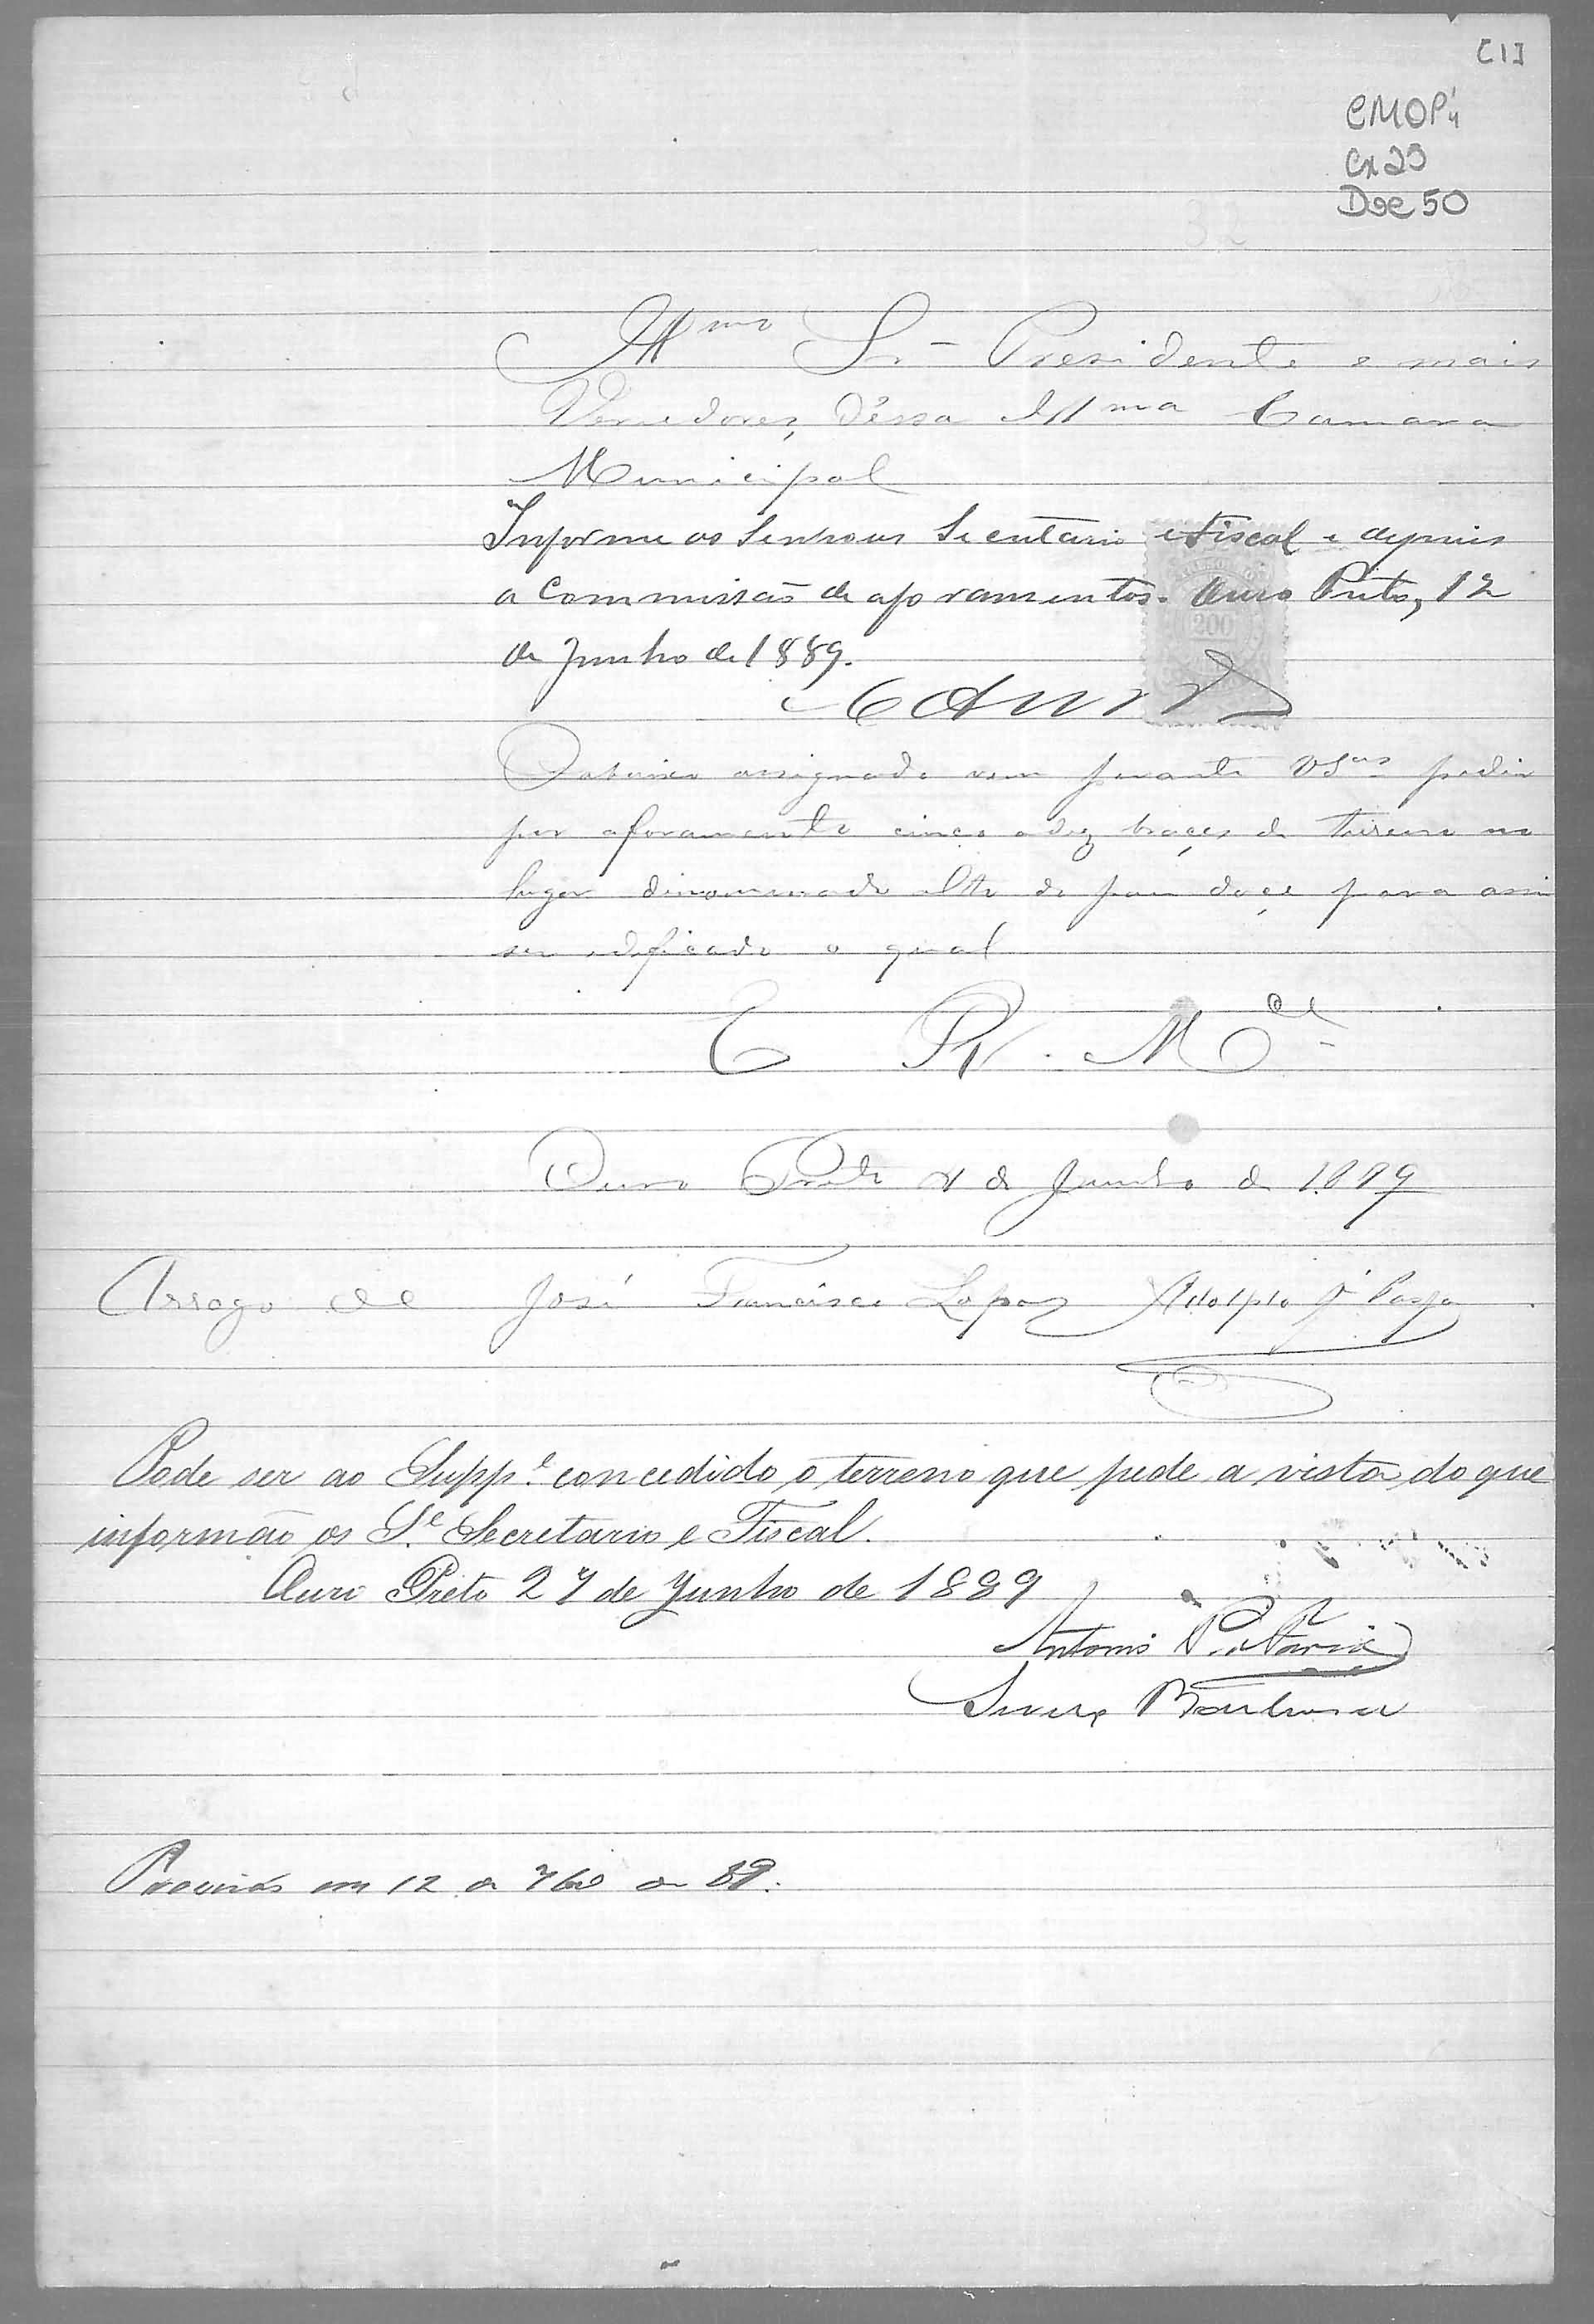 [1]
CMOP
Cx 29
Doc 50
Illmo Snr Presidente e mais
Vereadores, d'essa Illma Camara
Municipal
Informe os Senhores Secretario e Fiscal e depois
a Commissão de aforamentos. Ouro Preto, 12
de Junho de 1889.
200
O abaixo assignado vem perante VSas pedir
por aforamento cinco a dez braças de terreno no
lugar dinominado alto do pau doce para assim
ser edificado o qual
E R. Mce
Ouro Preto de Junho de 1889
Arrogo de José Francisco Lopes Adolpho
Pode ser ao Suppe. concedido o terreno que pede a vista do que
informão os Secretario e Fiscal.
Ouro Preto 27 de Junho de 1889
Antonio
Barbosa
em 12 de 7bro de 89.